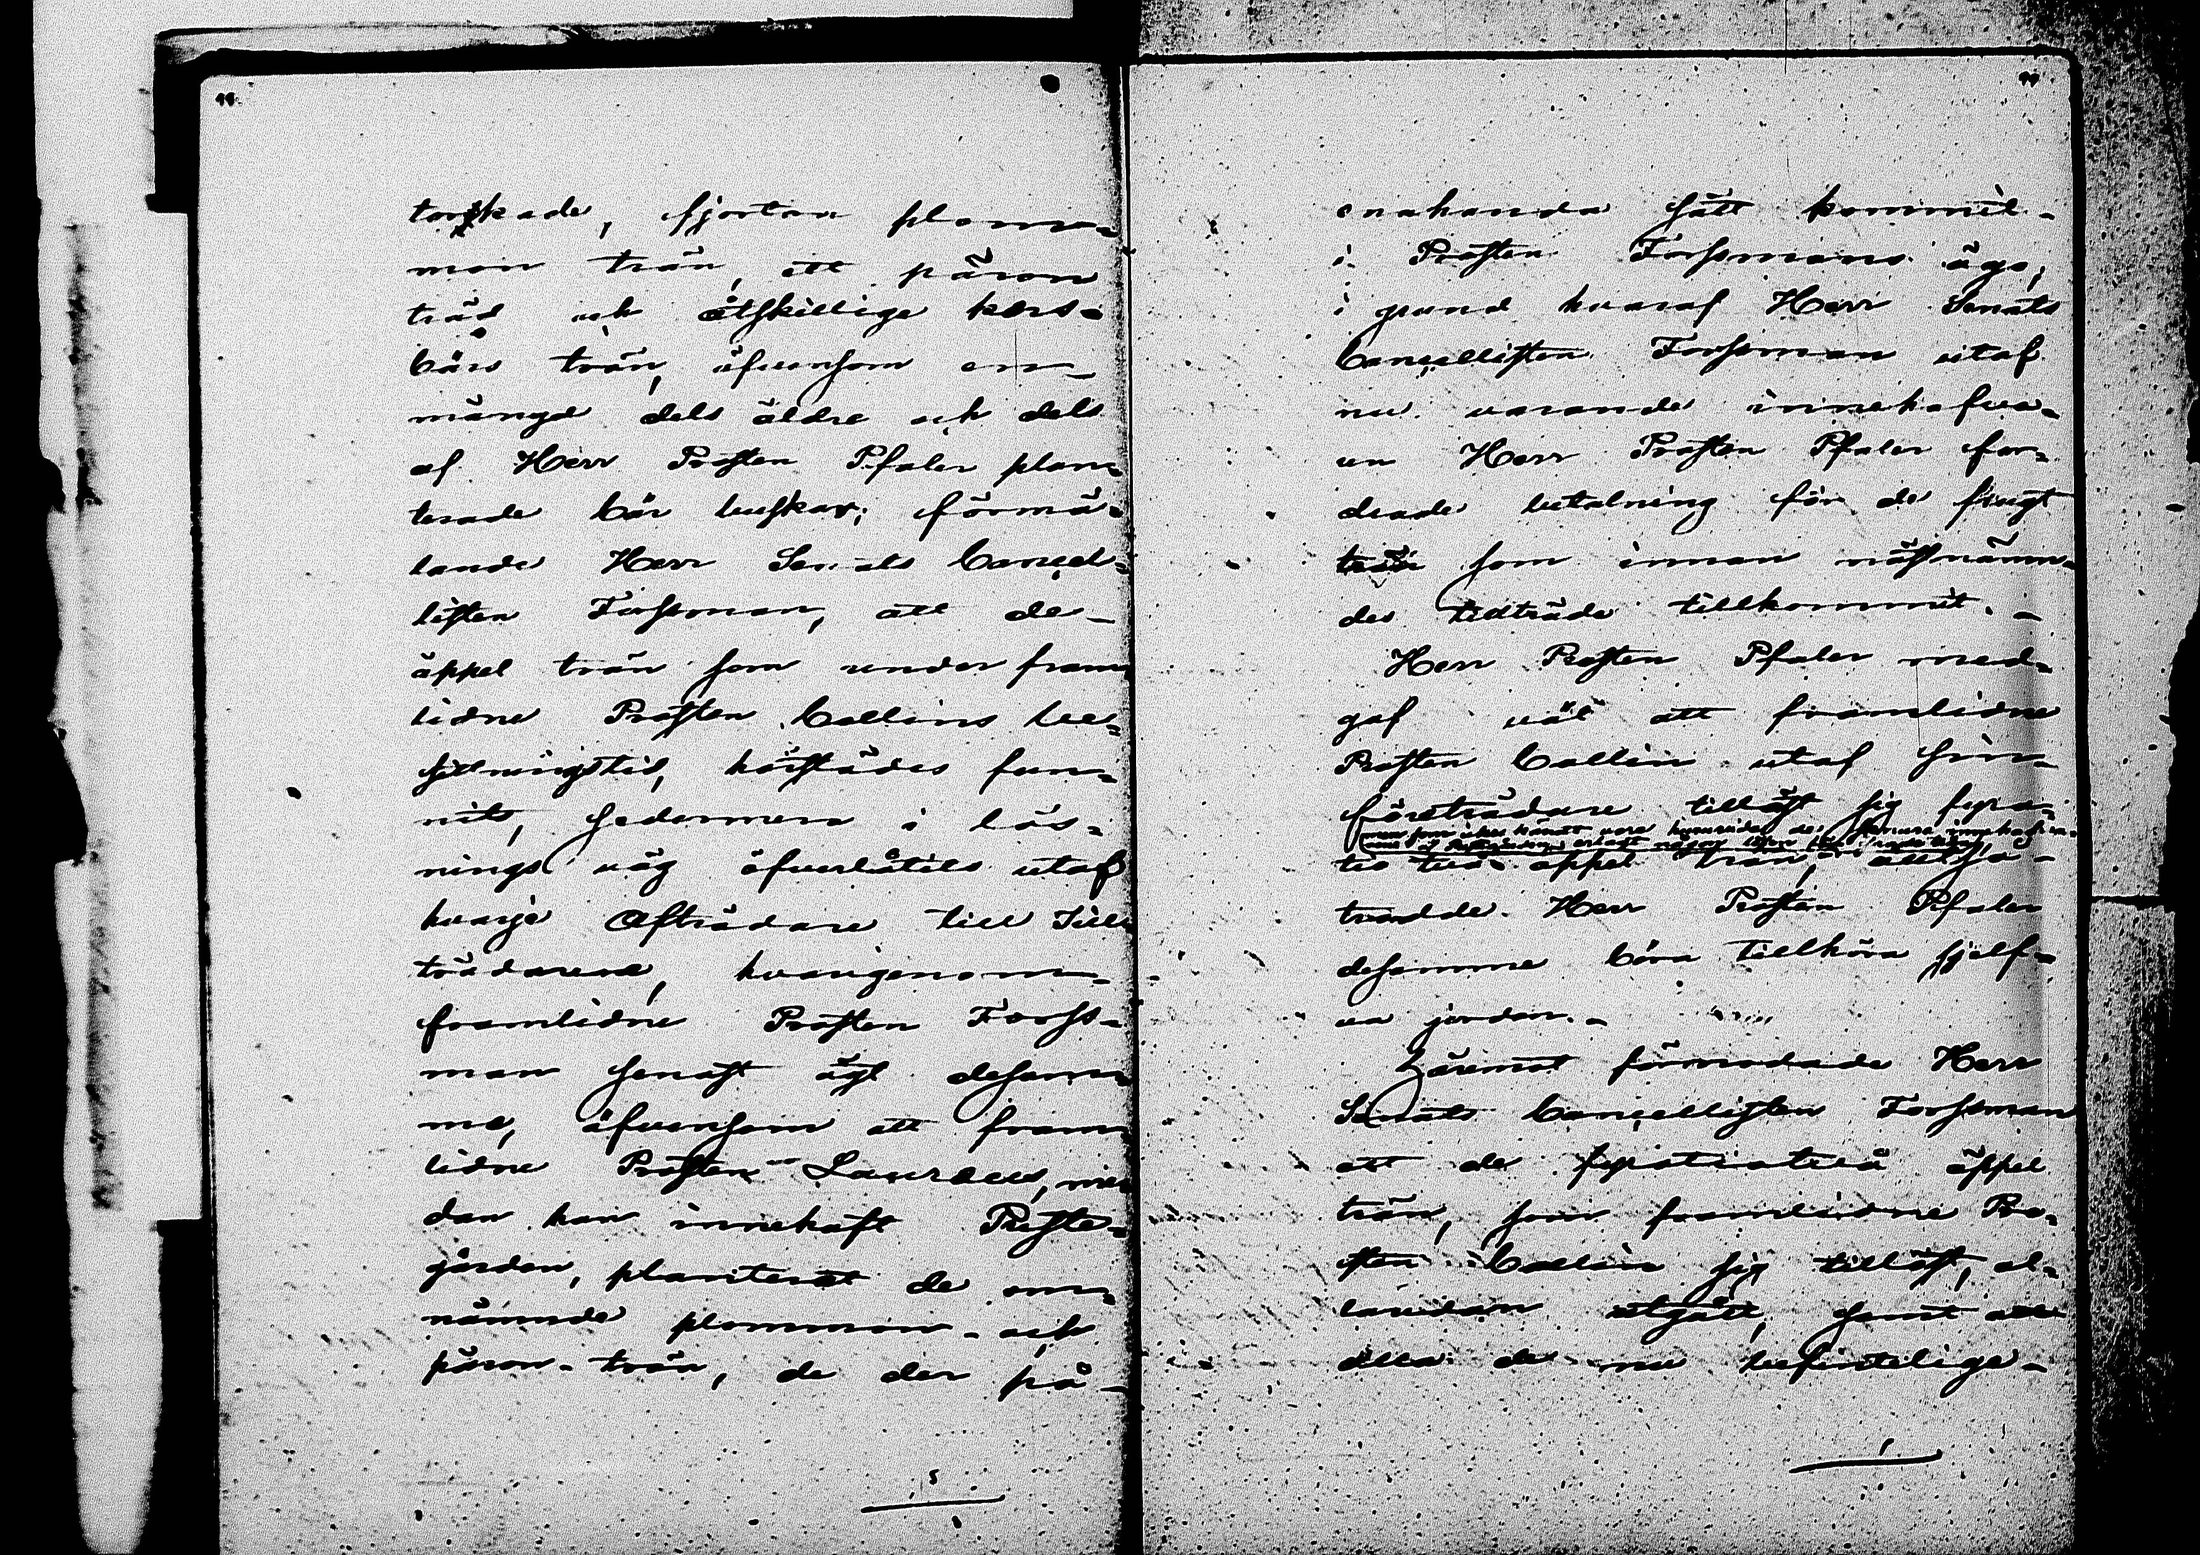 torkade, fjorton plom-
mon trän, ett päron
träd och åtskillige kers-
bärs trän, äfvensom en
mängd dels äldre och dels
af Herr Prosten Pfaler plan-
terade bär buskar; förmä-
lande Herr Senats Cancel-
listen Forssman, att de
äppel trän som under fram-
lidne Prosten Collins be-
sittningstid, härstädes fun-
nits, sedermera i lös-
nings väg öfverlåtits utaf
hvarje Afträdare till Till-
trädarene, hvarigenom
framlidne Prosten Forss-
man senast ägt desam-
me, äfvensom att fram-
lidne Prosten Lauræus, me-
dan han innehaft Preste-
gården, planterat de om-
nämnde plommon- och
päron-trän, de der på
enahanda sätt kommit
i Prosten Forssmans ägo;
i grund hvaraf Herr Senats
Cancellisten Forssman utaf
nu varande innehafva-
ren Herr Prosten Pfaler for-
drade betalning för de frugt
trän som innan nästnämn-
des tillträde tillkommit. -
Herr Prosten Pfaler med-
gaf väl att framlidne
Prosten Collin utaf sin
företrädare tillöst sig fyra-
tio två äppel trän, men som icke kändt vore huruvida de senare innehafva-
erlagt någon lösen
trodde Herr Prosten Pfaler
desamme böra tillhöra sjelf-
va jorden. -
Häremot förmodade Herr
Senats Cancellisten Forssman
att de fyratiotvå äppel
trän, som framlidne Pro-
sten Collin sig tillöst, al-
laredan utgått, samt att
alla de nu befintelige